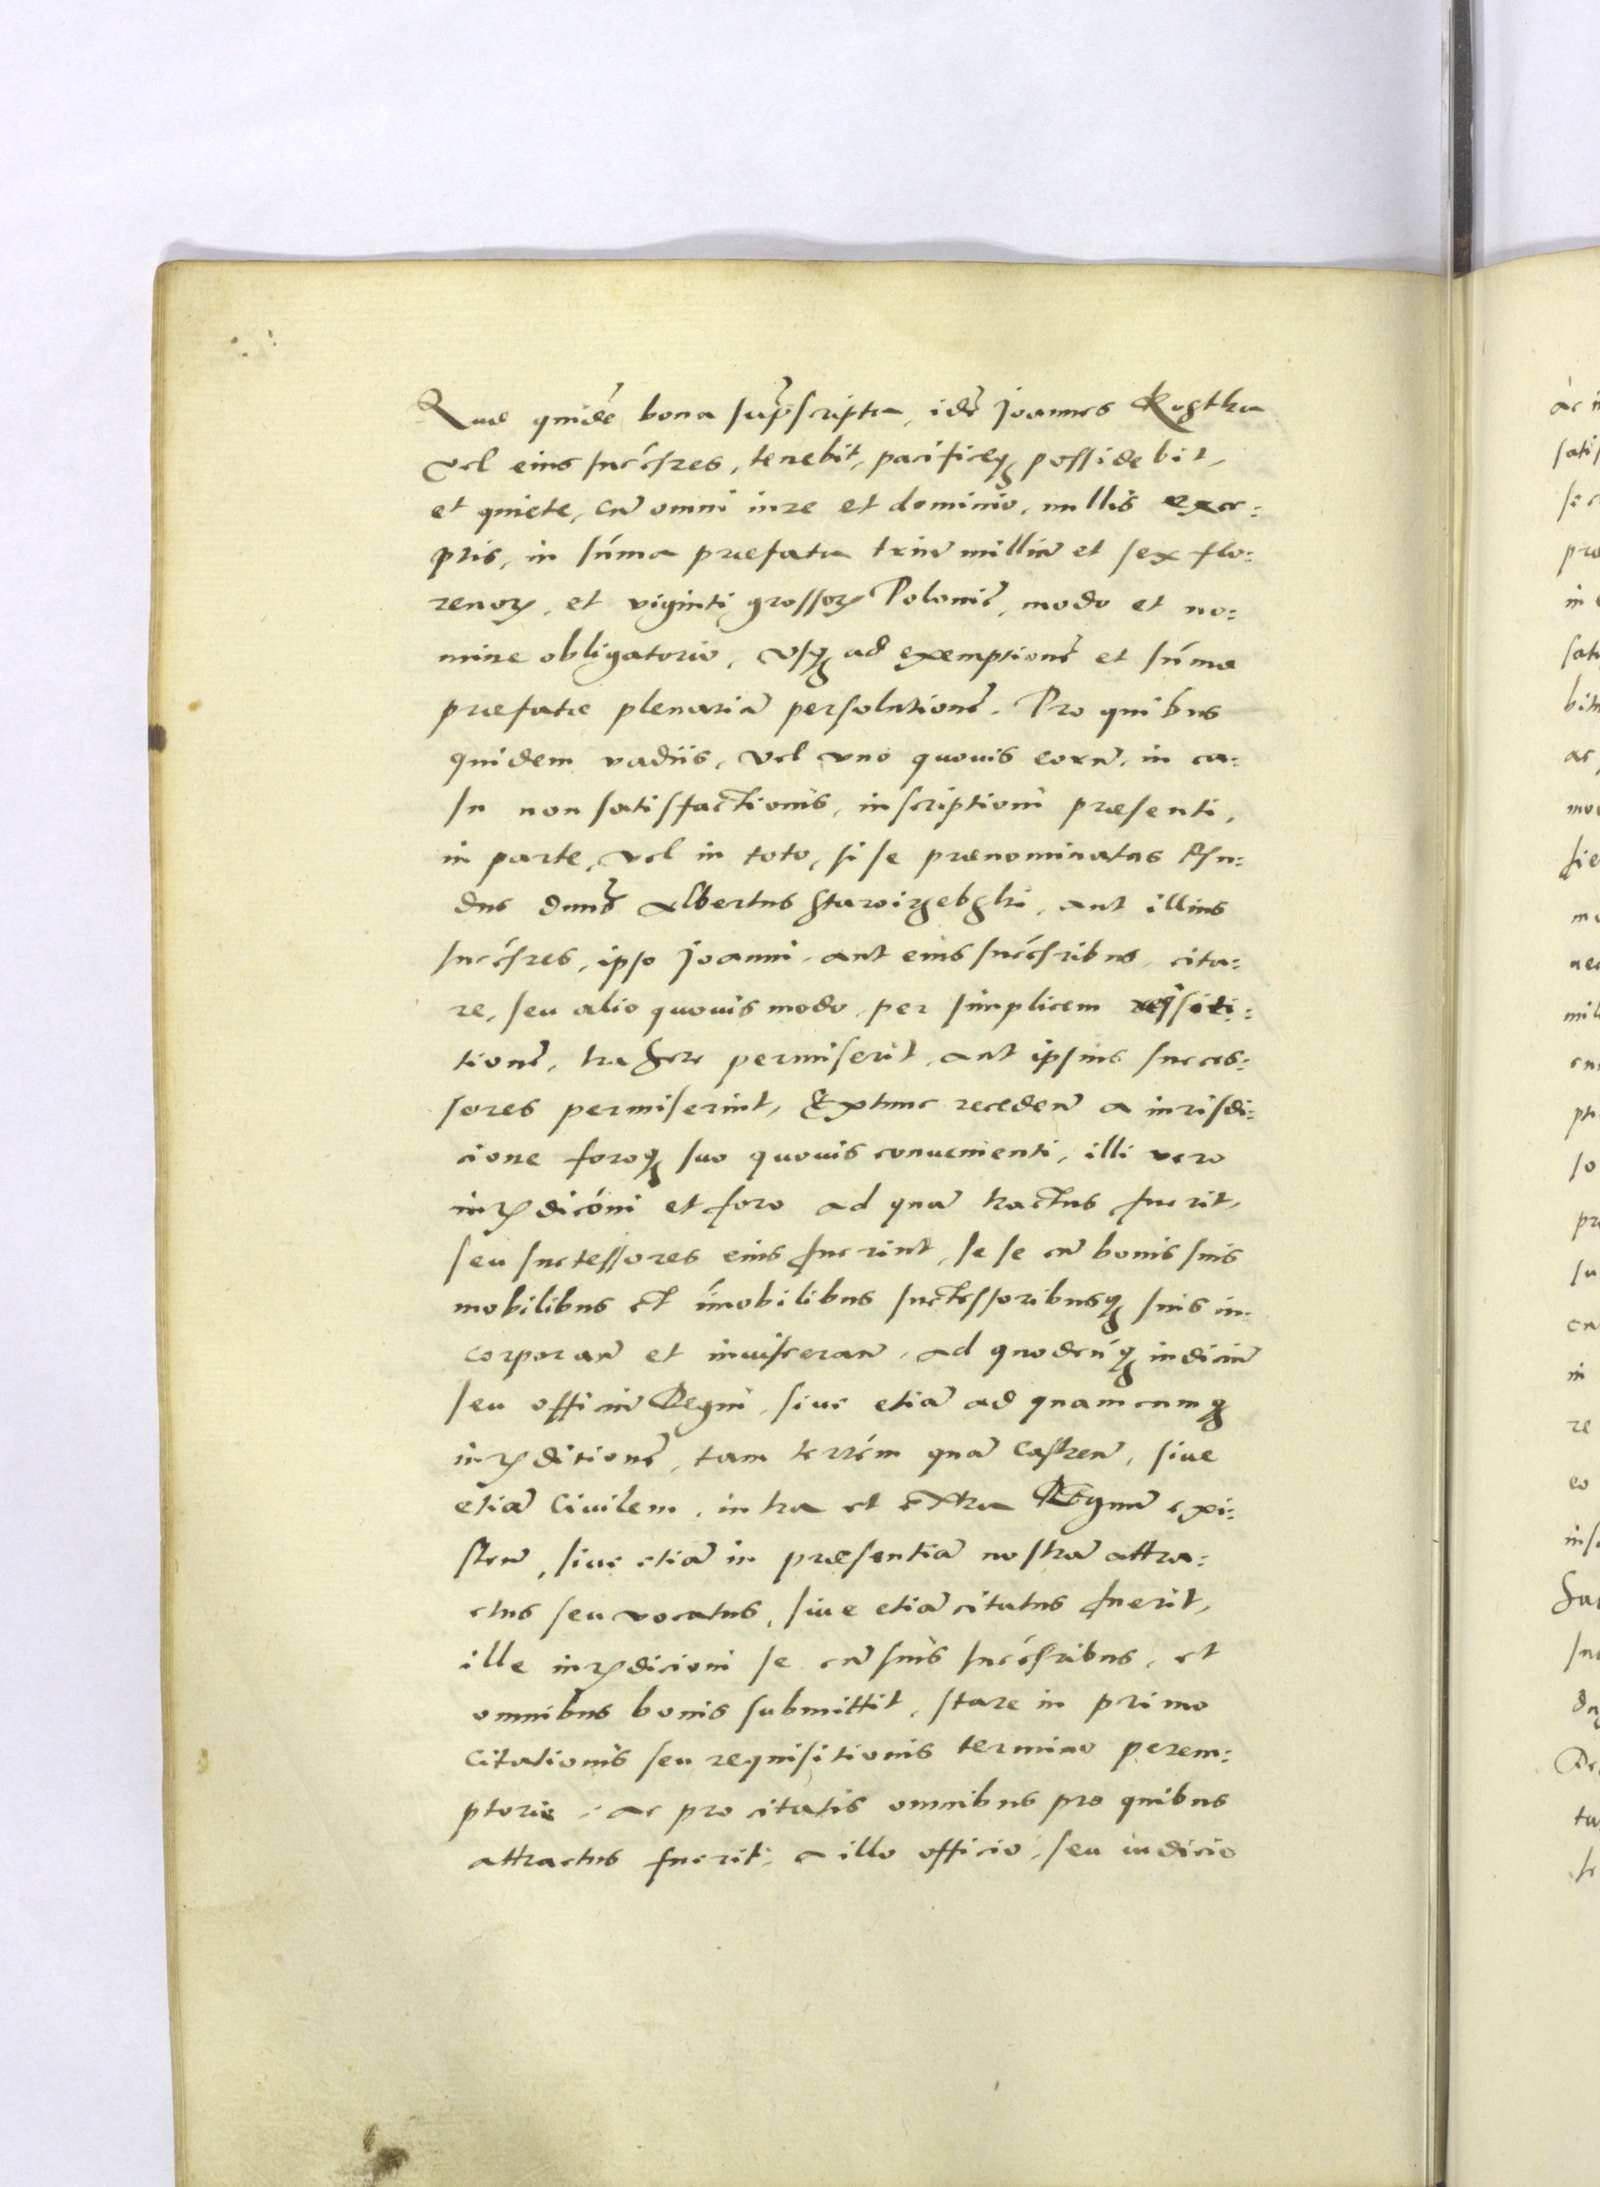 Quae quidē bona suprascripta, idē Joannes Kostka
vel eius succ̃sres, tenebit, pacificeq3 possidebit,
et quiete, cũ omni iure et dominio, nullis exce:
ptis, in sũma praefata triũ milliũ et sex flo:
renorꝝ, et viginti grossorꝝ Polonic̃, modo et no:
mine obligatorio, vsq3 ad exemptionẽ et sũmae
praefatae plenariã persolutionẽ. Pro quibus
quidem vadiis, vel vno quouis eorũ, in ca:
su non satisfactionis, inscriptioni praesenti,
in parte, vel in toto, si se praenominatus Rñ:
dus dñus Albertus Staroizebski, aut illius
succ̃sres, ipso Joanni, aut eius succ̃sribus, cita:
re, seu alio quouis modo, per simplicem
tionẽ, trahere permiserit, aut ipsius succes:
sores permiserint, Extunc recedeñ a iurisdi:
cione foroq3 suo quouis conuenienti, illi vero
iurꝝdicõni et foro ad quã tractus fuerit,
seu successores eius fuerint, se se cũ bonis suis
mobilibus et ĩmobilibus successoribusq3 suis in:
corporañ et inuiscerañ, ad quodcũq3 iudiciũ
seu officiũ Regni, siue etiã ad quamcumq3
iurꝝditionẽ, tam terrẽm quã Castreñ, siue
etiã Ciuilem, intra et extra Regnũ exi:
steñ, siue etiã in praesentiã nostrã attra:
ctus seu vocatus, siue etiã citatus fuerit,
ille iurꝝdicioni se cũ suis succ̃sribus, et
omnibus bonis submittit, stare in primo
citationis seu requisitionis termino perem:
ptorie, ac pro citatis omnibus pro quibus
attractus fuerit, a illo officio, seu iudicio